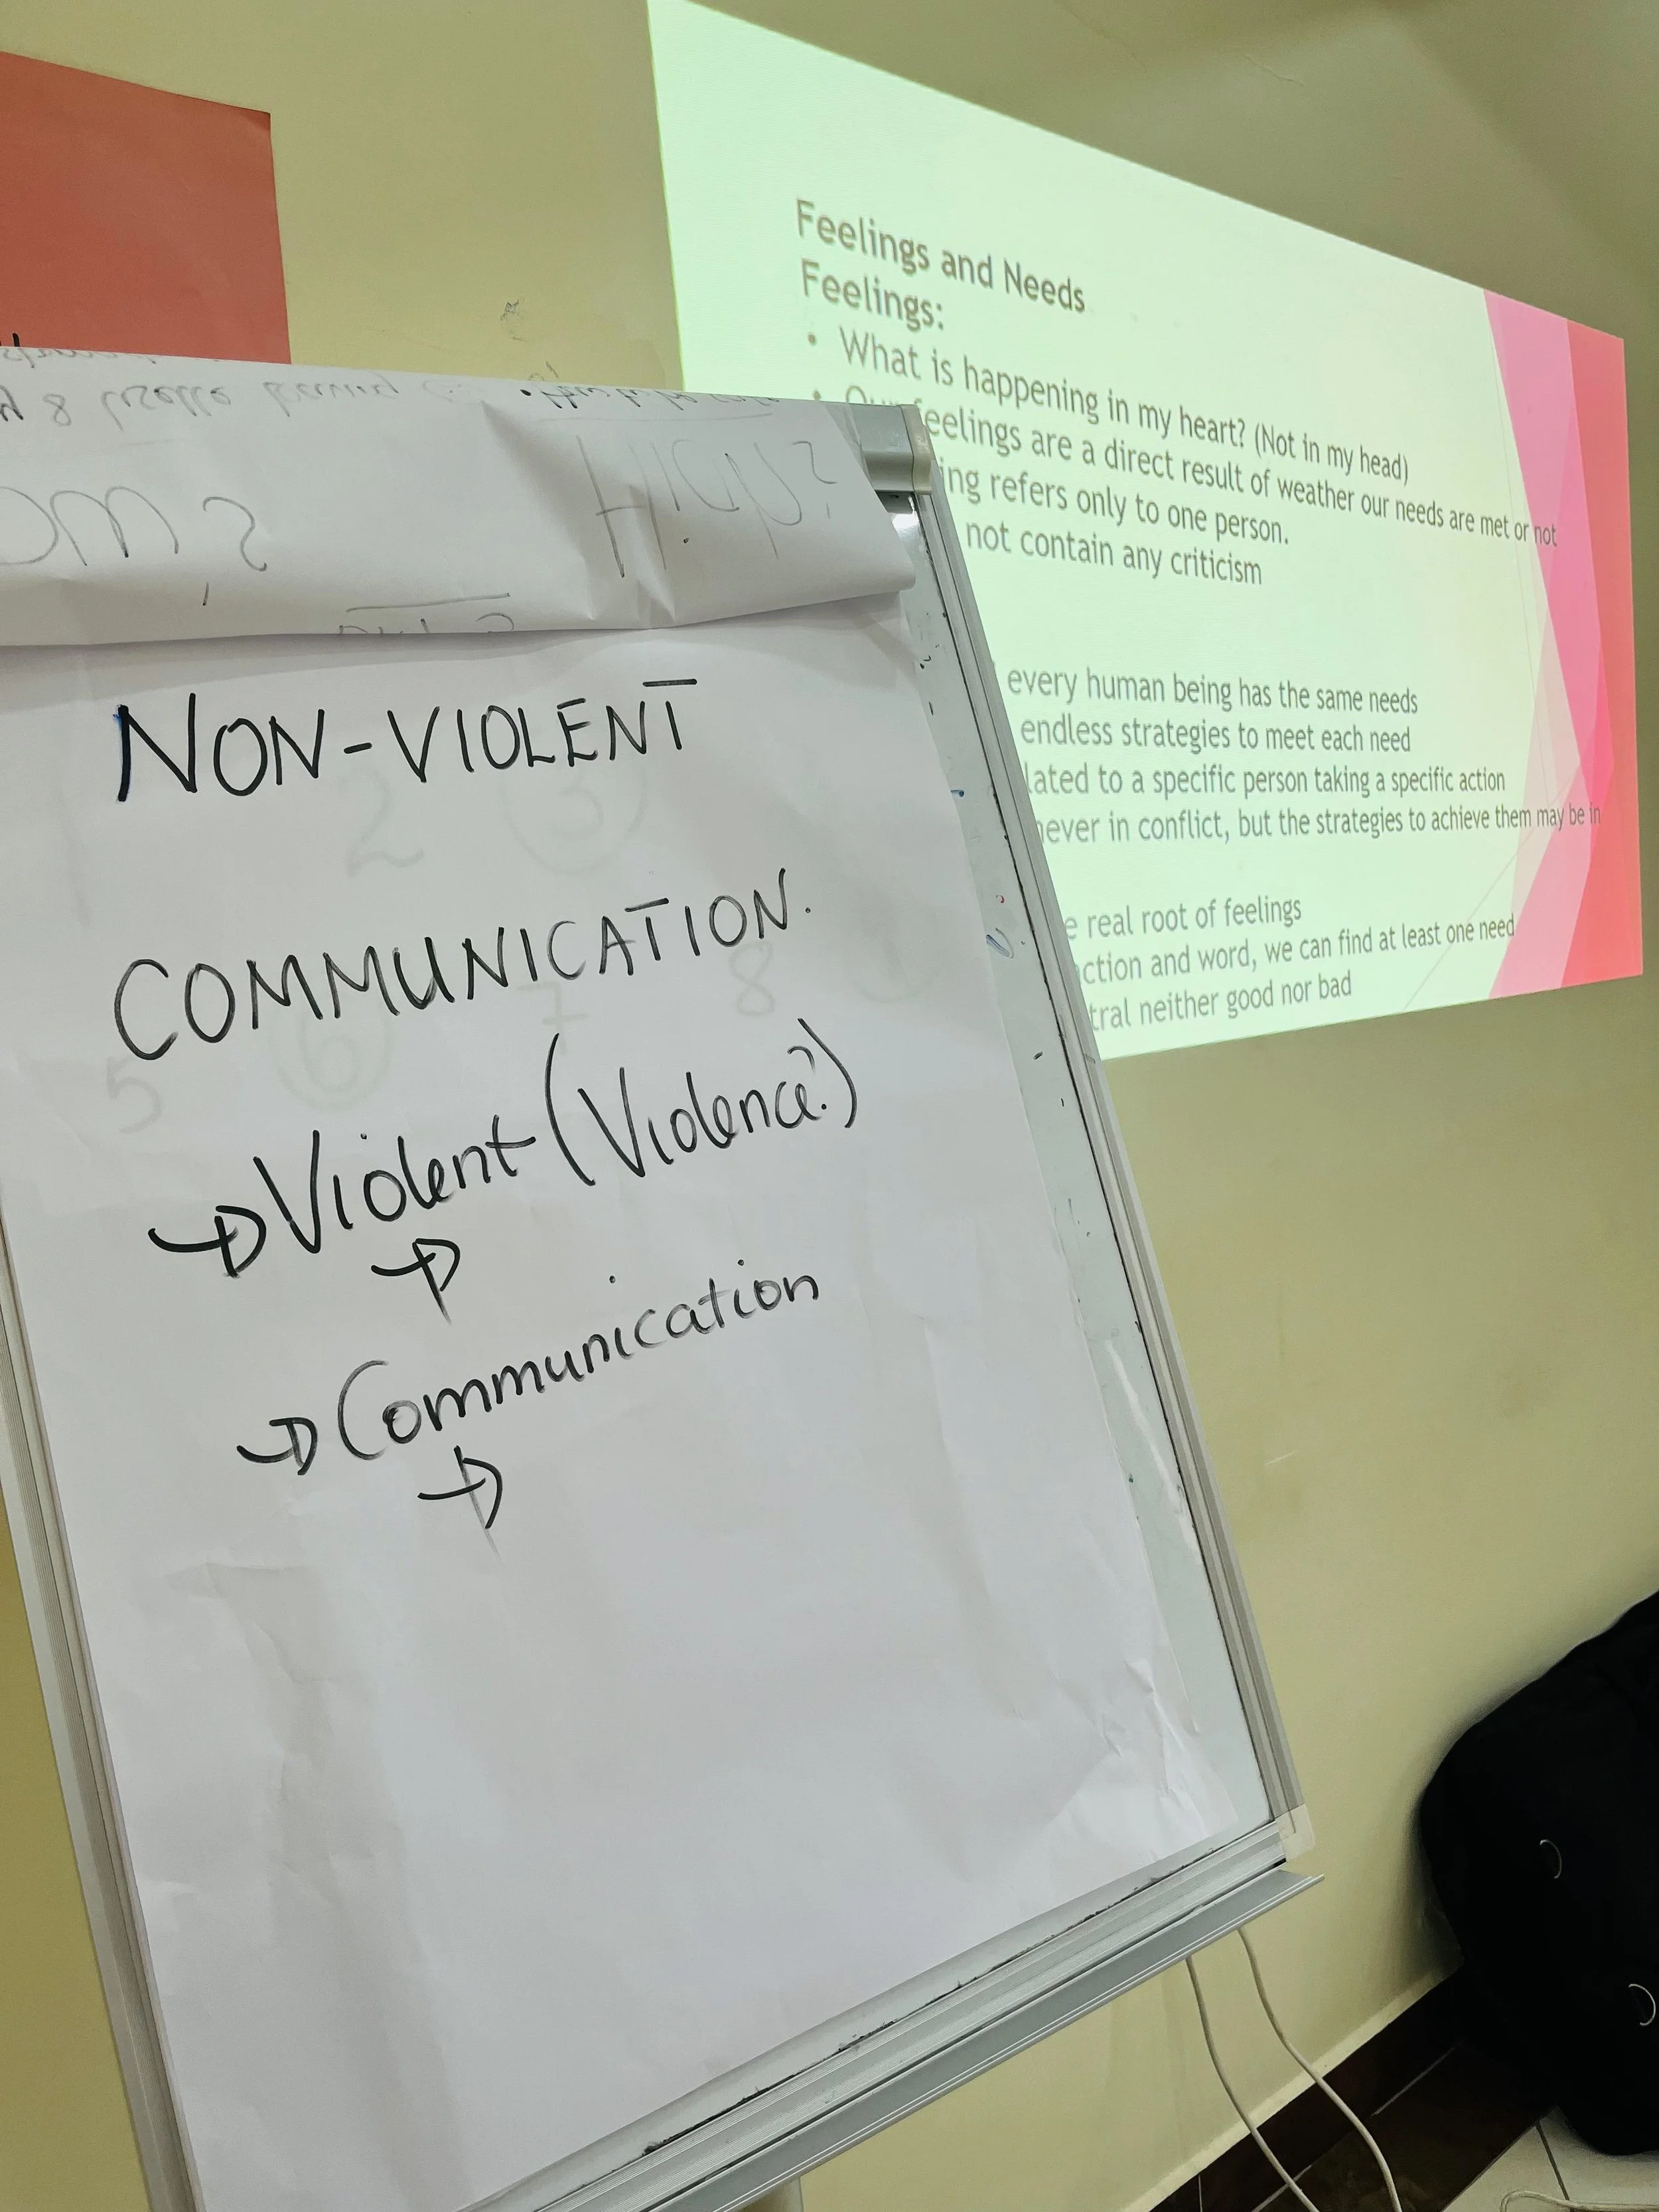 NON-VIOLENT
COMMUNICATION.
Violent (Violence?)
Communication
Feelings and Needs
Feelings:
• What is happening in my heart? (Not in my head)
• Our feelings are a direct result of weather our needs are met or not
refers only to one person.
not contain any criticism
every human being has the same needs
endless strategies to meet each need
to a specific person taking a specific action
never in conflict, but the strategies to achieve them may be in
real root of feelings
and word, we can find at least one need
neither good nor bad